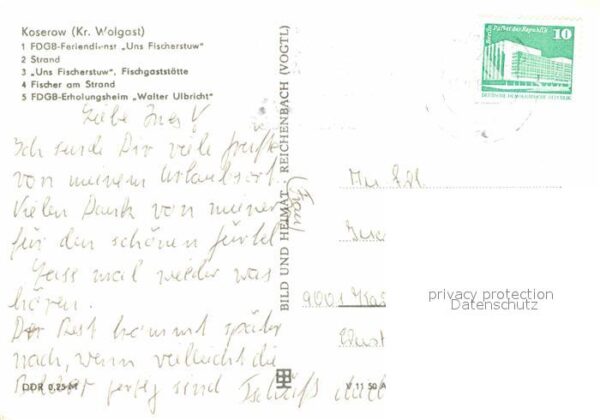 Koserow (Kr. Wolgast)
1 FDGB-Feriendienst „Uns Fischerstuw"
2 Strand
3 „Uns Fischerstuw", Fischgaststätte
4 Fischer am Strand
5 FDGB-Erholungsheim „Walter Ulbricht"
Liebe
Ich sende Dir viele Grüße
von meinem Urlaubsort.
Vielen Dank von meiner
für den schönen Gürtel
Lass mal wieder was
hören.
Der Rest kommt später
nach, wenn vielleicht die
Bilder fertig sind
DDR 0,25 M
BILD UND HEIMAT REICHENBACH (VOGTL)
V 11 50 A
Berlin Palast der Republik
10
DEUTSCHE DEMOKRATISCHE REPUBLIK
9001
privacy protection
Datenschutz